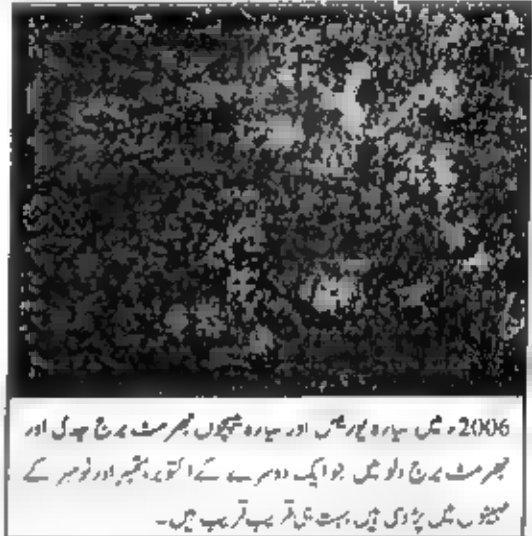 2006ء میں سیارہ یورینس اور سیارہ نیپچون جھرمٹ برج جدی اور
جھرمٹ برج دلو میں جو ایک دوسرے کے اکتوبر، ستمبر اور نومبر کے
مہینوں میں پڑوی ہیں بہت ہی قریب قریب ہیں۔